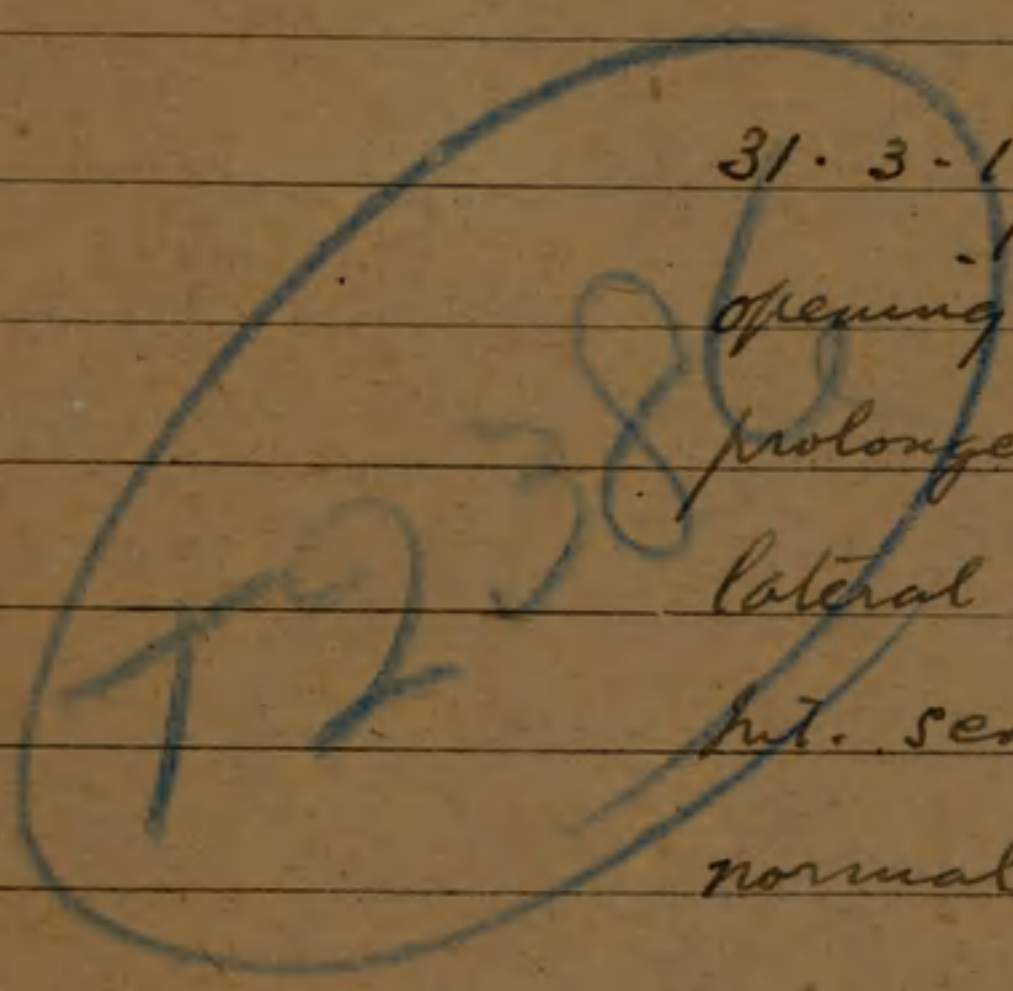 T2386
31. 3. 1
opening
prolonge
lateral
normal